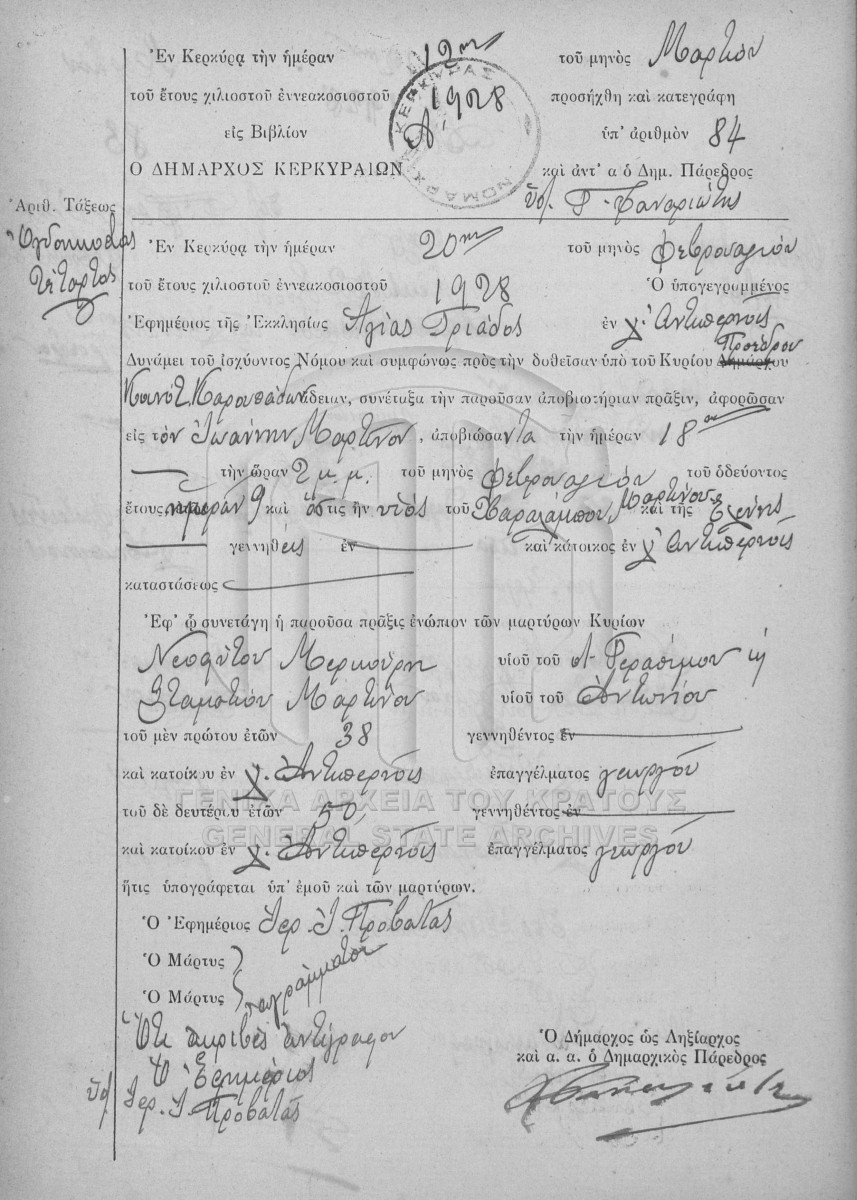 Ἐν Κερκύρᾳ τὴν ἡμέραν 12ην τοῦ μηνὸς Μαρτίου
τοῦ ἔτους χιλιοστοῦ ἐννεακοσιοστοῦ 1928 προσήχθη καὶ κατεγράφη
εἰς Βιβλίον Α' ὑπ' ἀριθμὸν 84
ΝΟΜΑΡΧΙΑ ΚΕΡΚΥΡΑΣ
Ο ΔΗΜΑΡΧΟΣ ΚΕΡΚΥΡΑΙΩΝ καὶ ἀντ' α ὁ Δημ. Πάρεδρος
Ἀριθ. Τάξεως
ὑπ. Γ. Φαναριώτης
Ὀγδοηκοστὸς
τέταρτος
Ἐν Κερκύρᾳ τὴν ἡμέραν 20ην τοῦ μηνὸς Φεβρουαρίου
τοῦ ἔτους χιλιοστοῦ ἐννεακοσιοστοῦ 1928 Ὁ ὑπογεγραμμένος
Ἐφημέριος τῆς Ἐκκλησίας Ἁγίας Τριάδος ἐν χ. Ἀντιπερνοῖς
Προέδρου
Δυνάμει τοῦ ἰσχύοντος Νόμου καὶ συμφώνως πρὸς τὴν δοθεῖσαν ὑπὸ τοῦ Κυρίου Δημάρχου
ἄδειαν, συνέταξα τὴν παροῦσαν ἀποβιωτήριαν πρᾶξιν, ἀφορῶσαν
εἰς τὸν Ἰωάννην Μαρτῖνον, ἀποβιώσαντα τὴν ἡμέραν 18ην
τὴν ὥραν 2 μ.μ. τοῦ μηνὸς Φεβρουαρίου τοῦ ὁδεύοντος
ἔτους, ἡμερῶν 9 καὶ ὅστις ἦν υἱὸς τοῦ Χαραλάμπου Μαρτίνου καὶ τῆς Ἑλένης
γεννηθεὶς ἐν καὶ κάτοικος ἐν χ. Ἀντιπερνοῖς
καταστάσεως
Ἐφ' ᾧ συνετάγη ἡ παροῦσα πρᾶξις ἐνώπιον τῶν μαρτύρων Κυρίων
Νεοφύτου Μερκούρη υἱοῦ τοῦ Γερασίμου
Σταματίου Μαρτίνου υἱοῦ τοῦ Ἀντωνίου
τοῦ μὲν πρώτου ἐτῶν 38 γεννηθέντος ἐν
καὶ κατοίκου ἐν χ. Ἀντιπερνοῖς ἐπαγγέλματος γεωργοῦ
ΓΕΝΙΚΑ ΑΡΧΕΙΑ ΤΟΥ ΚΡΑΤΟΥΣ
τοῦ δὲ δευτέρου ἐτῶν 50 γεννηθέντος ἐν
GENERAL STATE ARCHIVES
καὶ κατοίκου ἐν χ. Ἀντιπερνοῖς ἐπαγγέλματος γεωργοῦ
ἥτις ὑπογράφεται ὑπ' ἐμοῦ καὶ τῶν μαρτύρων.
Ὁ Ἐφημέριος Ἱερ. Ἰ. Προβατᾶς
Ὁ Μάρτυς
Ὁ Μάρτυς ἀγράμματοι
Ὅτι ἀκριβὲς ἀντίγραφον
Ὁ Ἐφημέριος
ὑπ. Ἱερ. Ἰ. Προβατᾶς
Ὁ Δήμαρχος ὡς Ληξίαρχος
καὶ α. α. ὁ Δημαρχικὸς Πάρεδρος